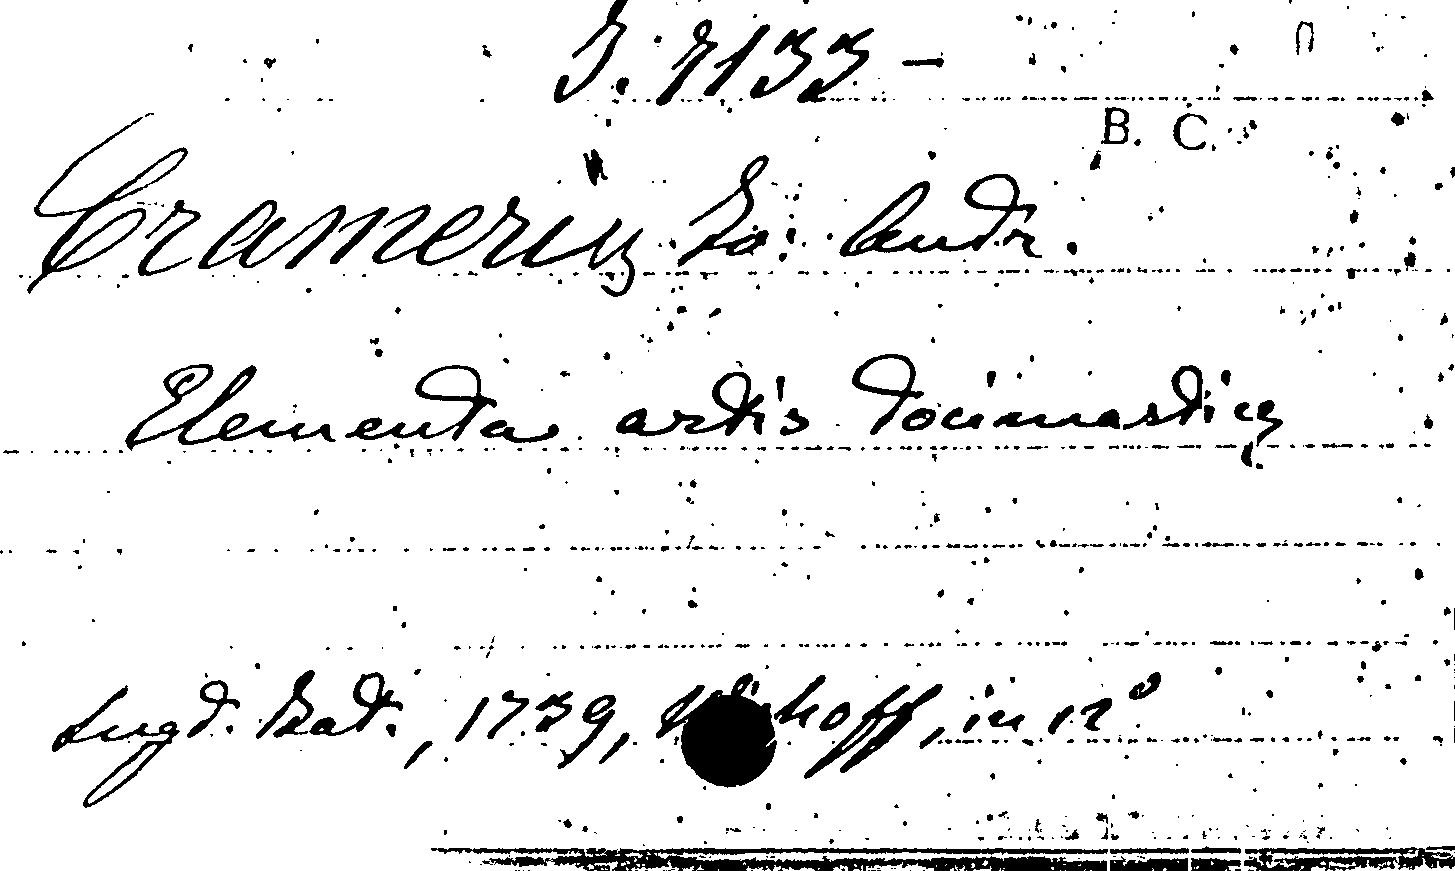 S. 7133 –
B. C.
Cramerus Jo: Andr.
Elementa artis docimasticæ
Lugd. Bat., 1739, in 12°